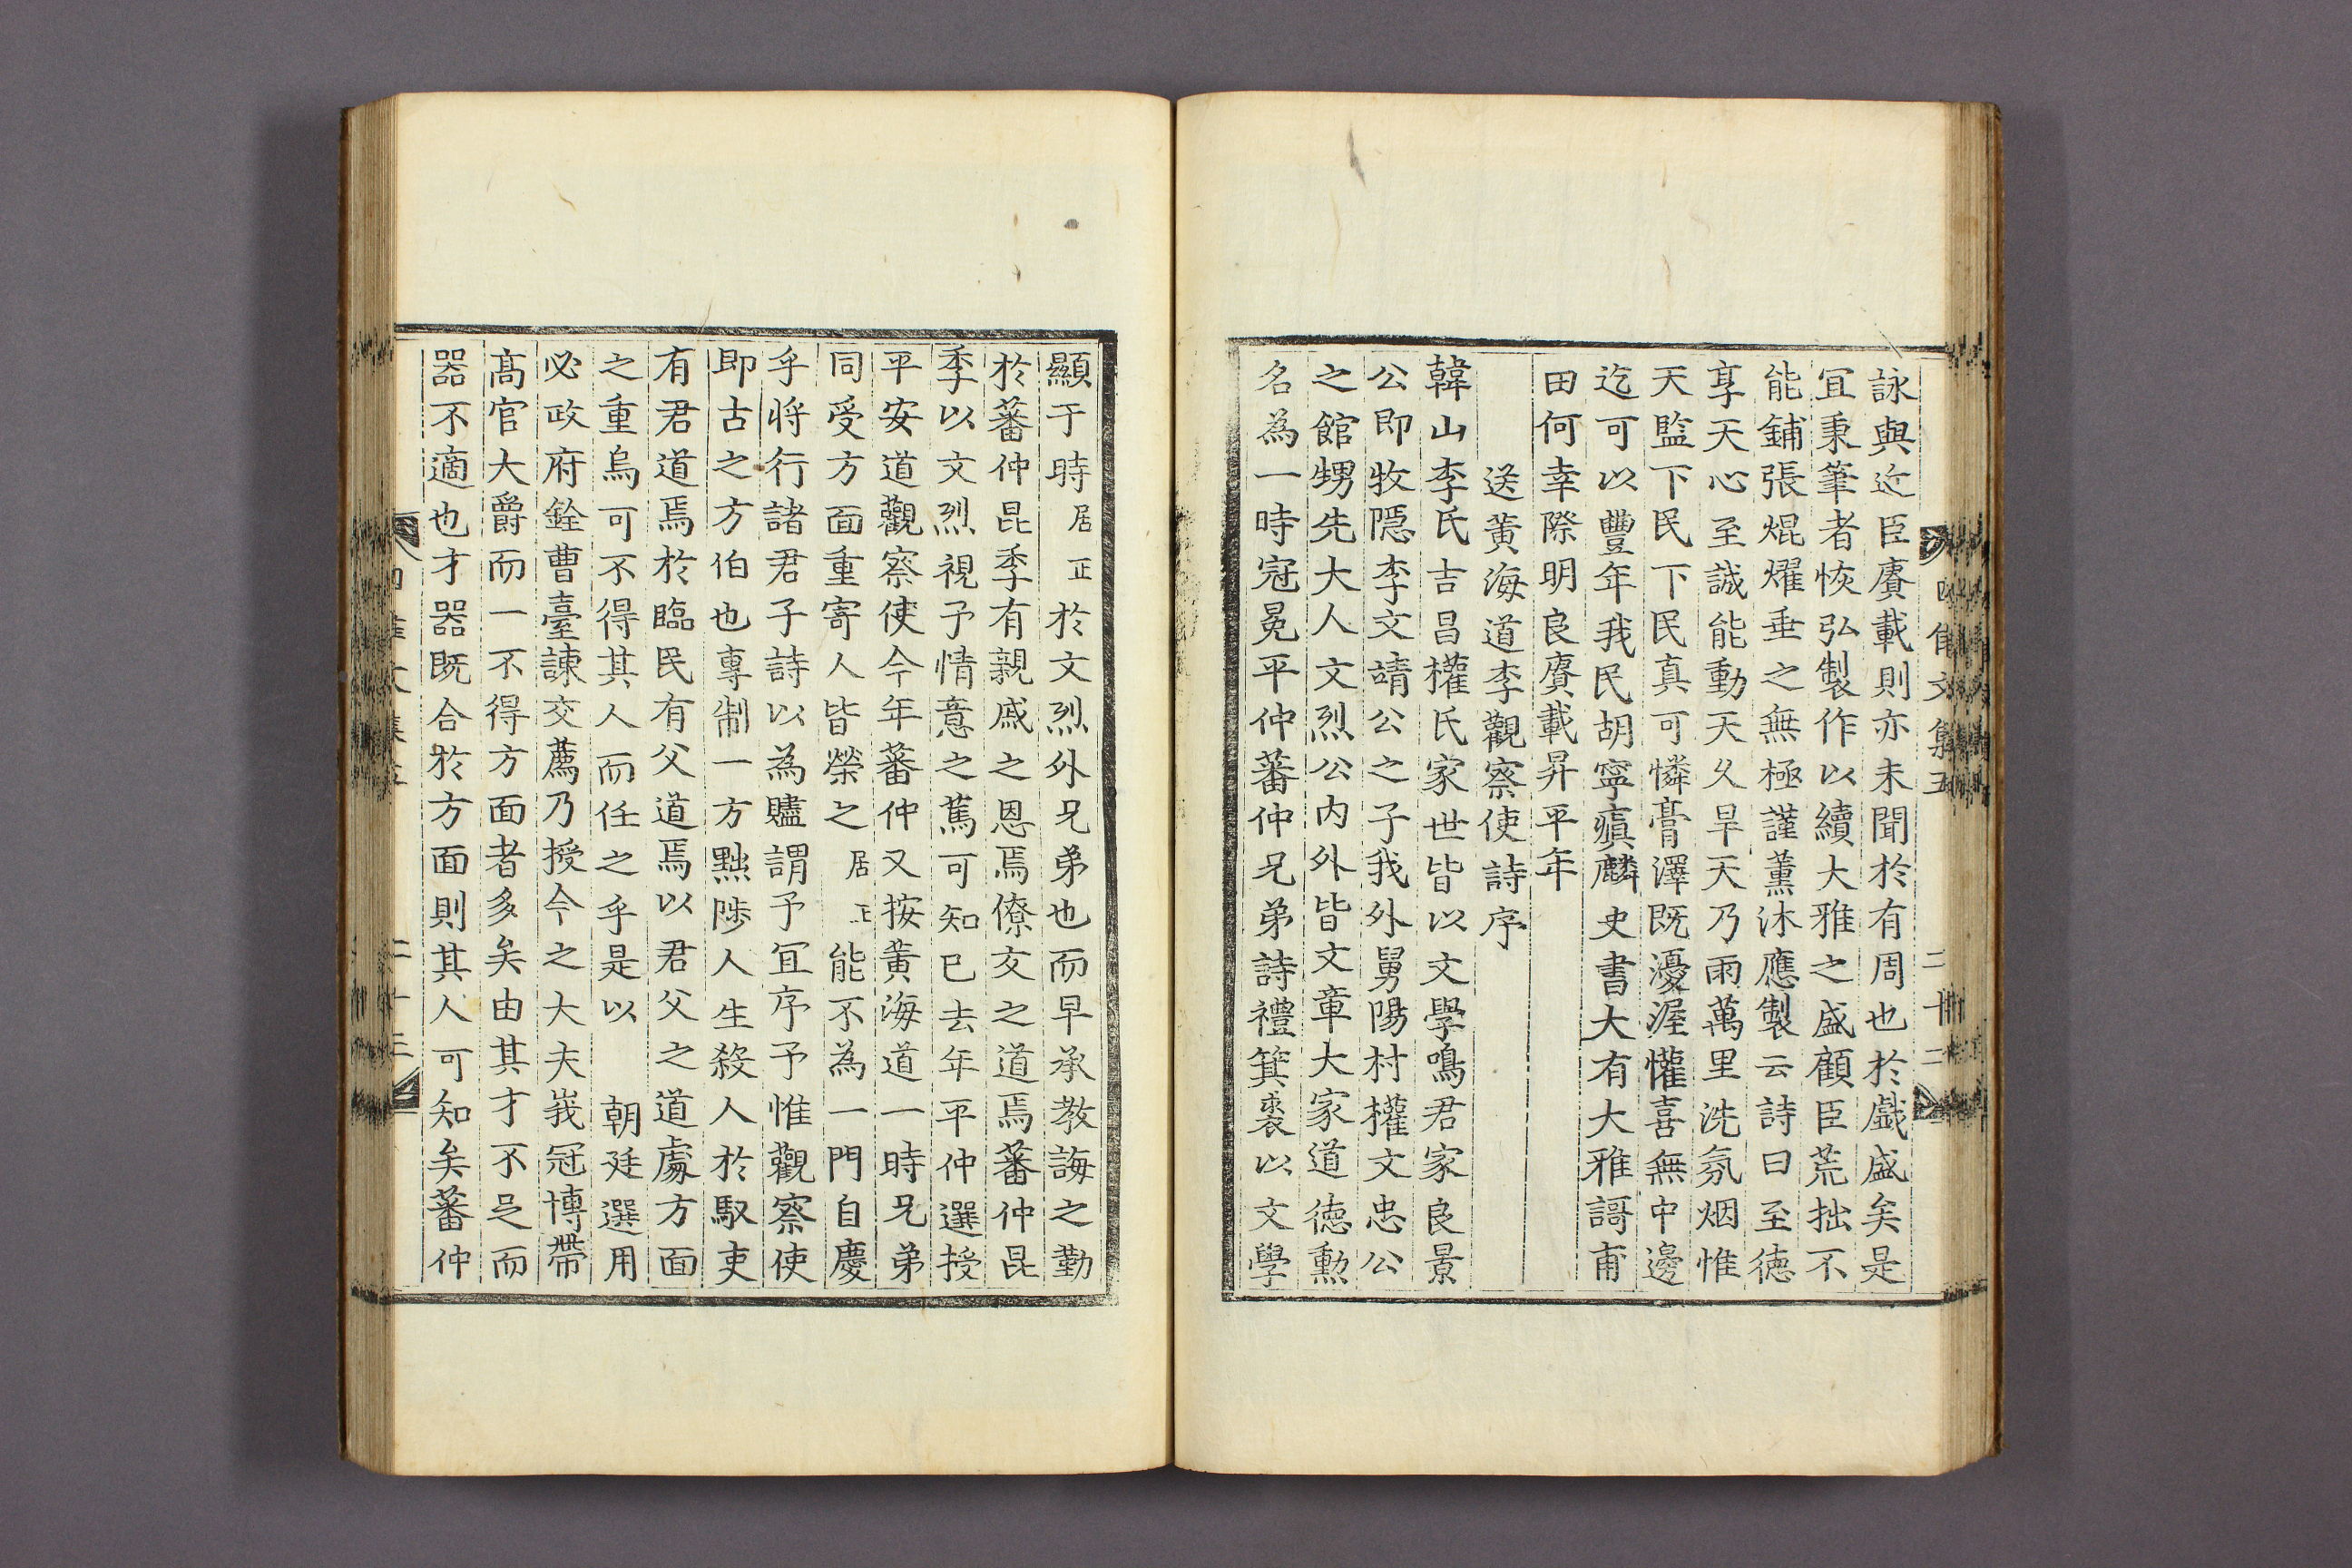 四佳文集五 二十二
詠與近臣賡載則亦未聞於有周也於戲盛矣是
冝秉筆者恢弘製作以續大雅之盛顧臣荒拙不
能鋪張焜燿垂之無極謹薰沐應製云詩曰至德
享天心至誠能動天久旱天乃雨萬里洗氛烟惟
天監下民下民真可憐膏澤既瀀渥懽喜無中邊
迄可以豐年我民胡寧瘨麟史書大有大雅謌甫
田何幸際明良賡載昇平年
送黃海道李觀察使詩序
韓山李氏吉昌權氏家世皆以文學鳴君家良景
公即牧隱李文靖公之子我外舅陽村權文忠公
之館甥先大人文烈公內外皆文章大家道德勳
名為一時冠冕平仲蕃仲兄弟詩禮箕裘以文學
顯于時居正於文烈外兄弟也而早承教誨之勤
於蕃仲昆季有親戚之恩焉僚友之道焉蕃仲昆
季以文烈視予情意之篤可知已去年平仲選授
平安道觀察使今年蕃仲又按黃海道一時兄弟
同受方面重寄人皆榮之居正能不為一門自慶
乎將行諸君子詩以為贐謂予冝序予惟觀察使
即古之方伯也專制一方黜陟人生殺人於馭吏
有君道焉於臨民有父道焉以君父之道處方面
之重烏可不得其人而任之乎是以 朝廷選用
必政府銓曹臺諫交薦乃授今之大夫峩冠博帶
高官大爵而一不得方面者多矣由其才不足而
器不適也才器既合於方面則其人可知矣蕃仲